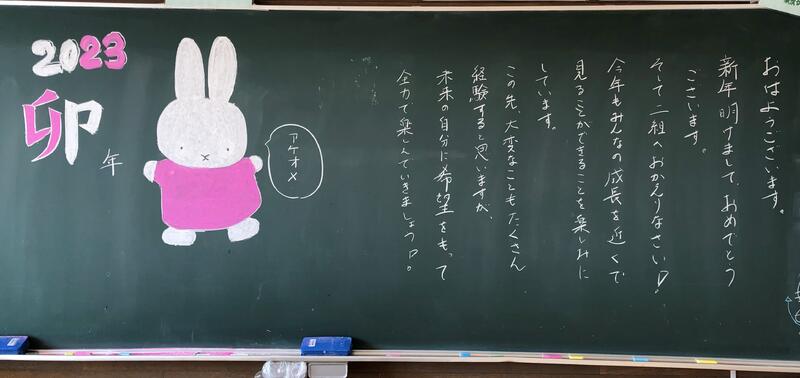 おはようございます。
新年明けまして、おめでとう
ございます。
そして二組へおかえりなさい♡。
今年もみんなの成長を近くで
見ることができることを楽しみに
しています。
この先、大変なこともたくさん
経験すると思いますが、
未来の自分に希望をもって
全力で楽しんでいきましょっ♡。
アケオメ
2023
卯年